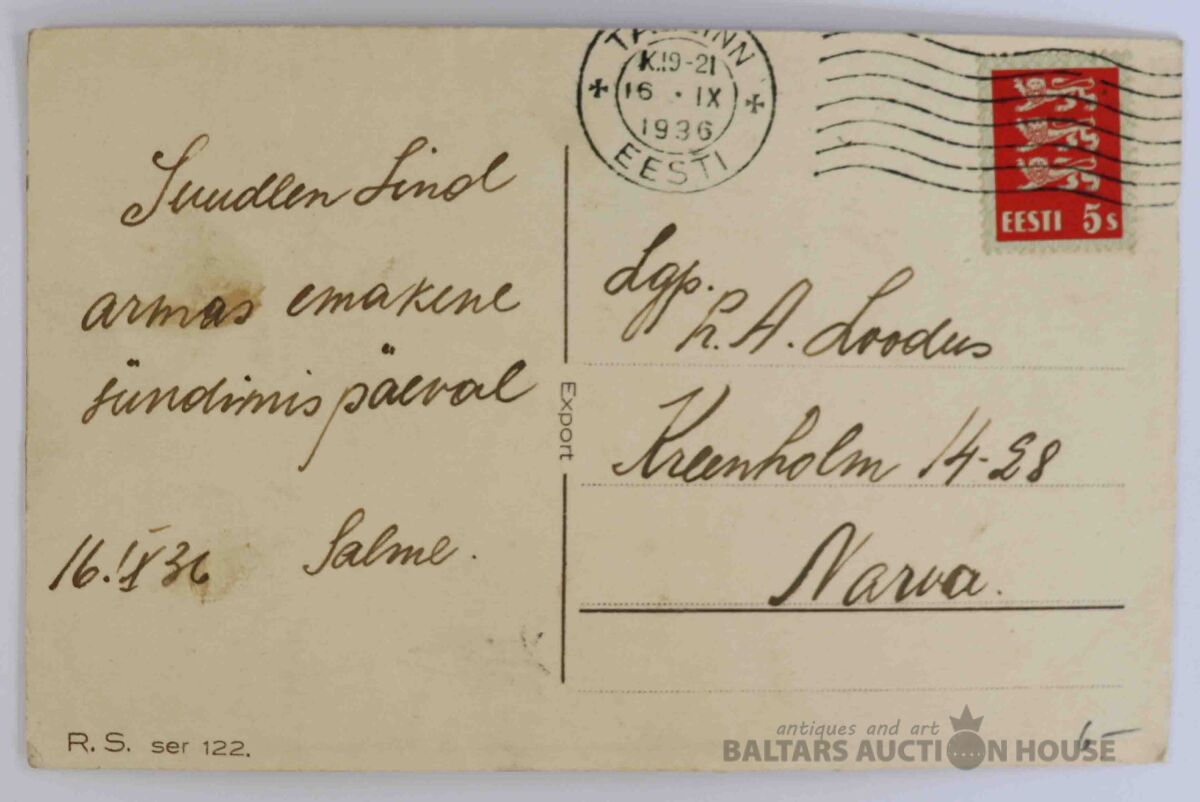 TALLINN
K.19-21
16 · IX
1936
EESTI
EESTI 5s
Suudlen Sind
armas emakene
sündimispäeval
16.IX 36 Salme.
Export
Lgp.
Pr. A. Loodus
Kreenholm 14-28
Narva.
R. S. ser 122.
6-
antiques and art
BALTARS AUCTION HOUSE